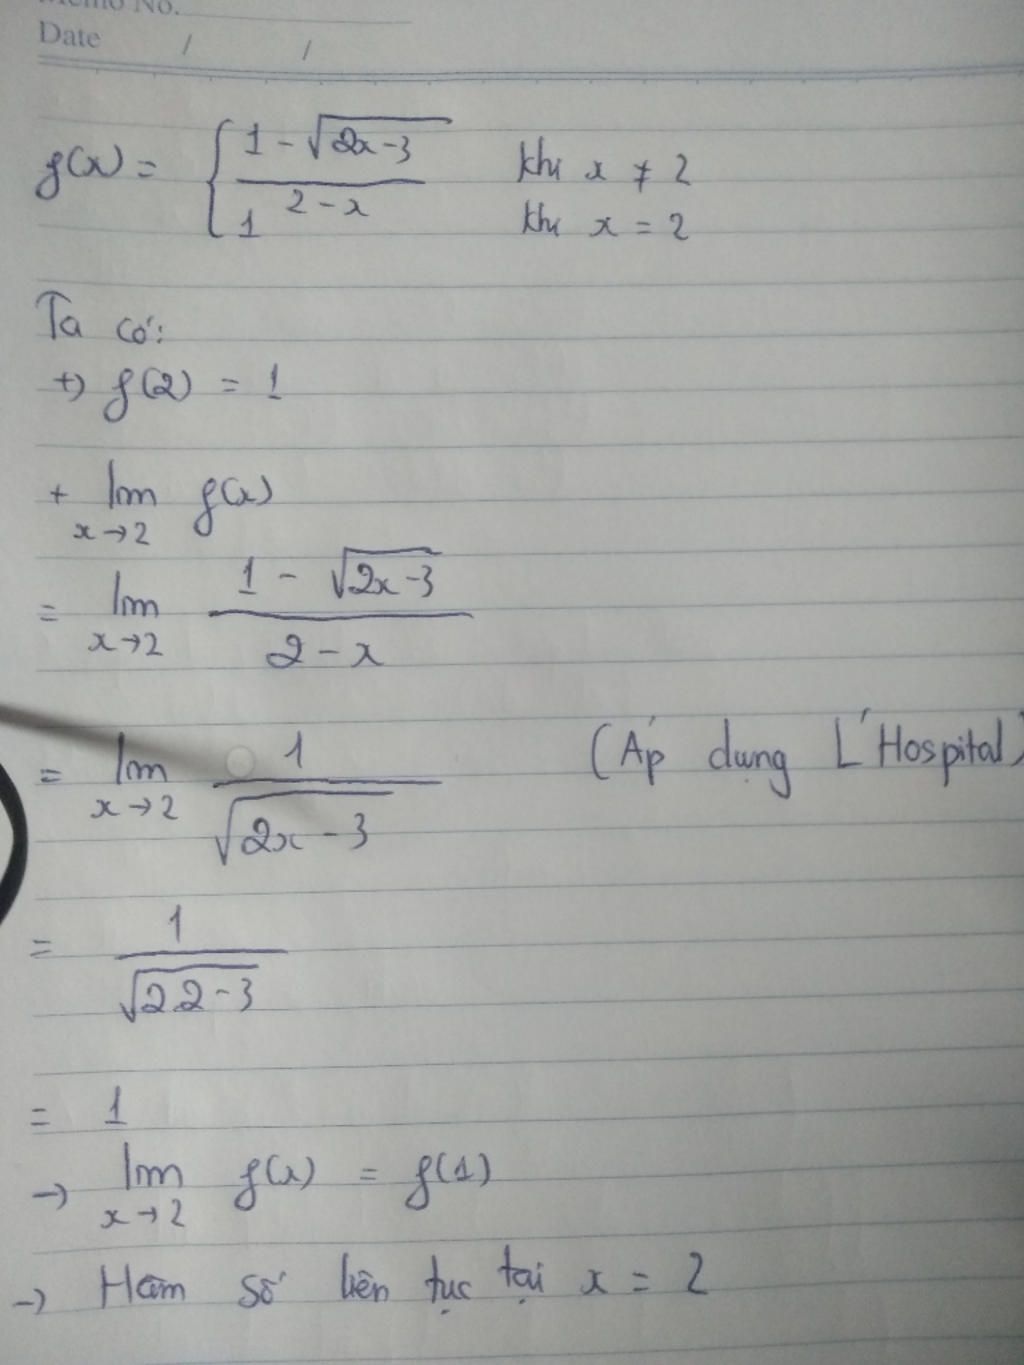 Memo No.
Date / /
f(x) = { 1 - √(2x-3) / 2 - x khi x ≠ 2
1 khi x = 2
Ta có:
+) f(2) = 1
+ lim x→2 f(x)
= lim x→2 1 - √(2x-3) / 2 - x
= lim x→2 1 / √(2x-3) (Áp dụng L'Hospital)
= 1 / √(2.2-3)
= 1
→ lim x→2 f(x) = f(1)
→ Hàm số liên tục tại x = 2